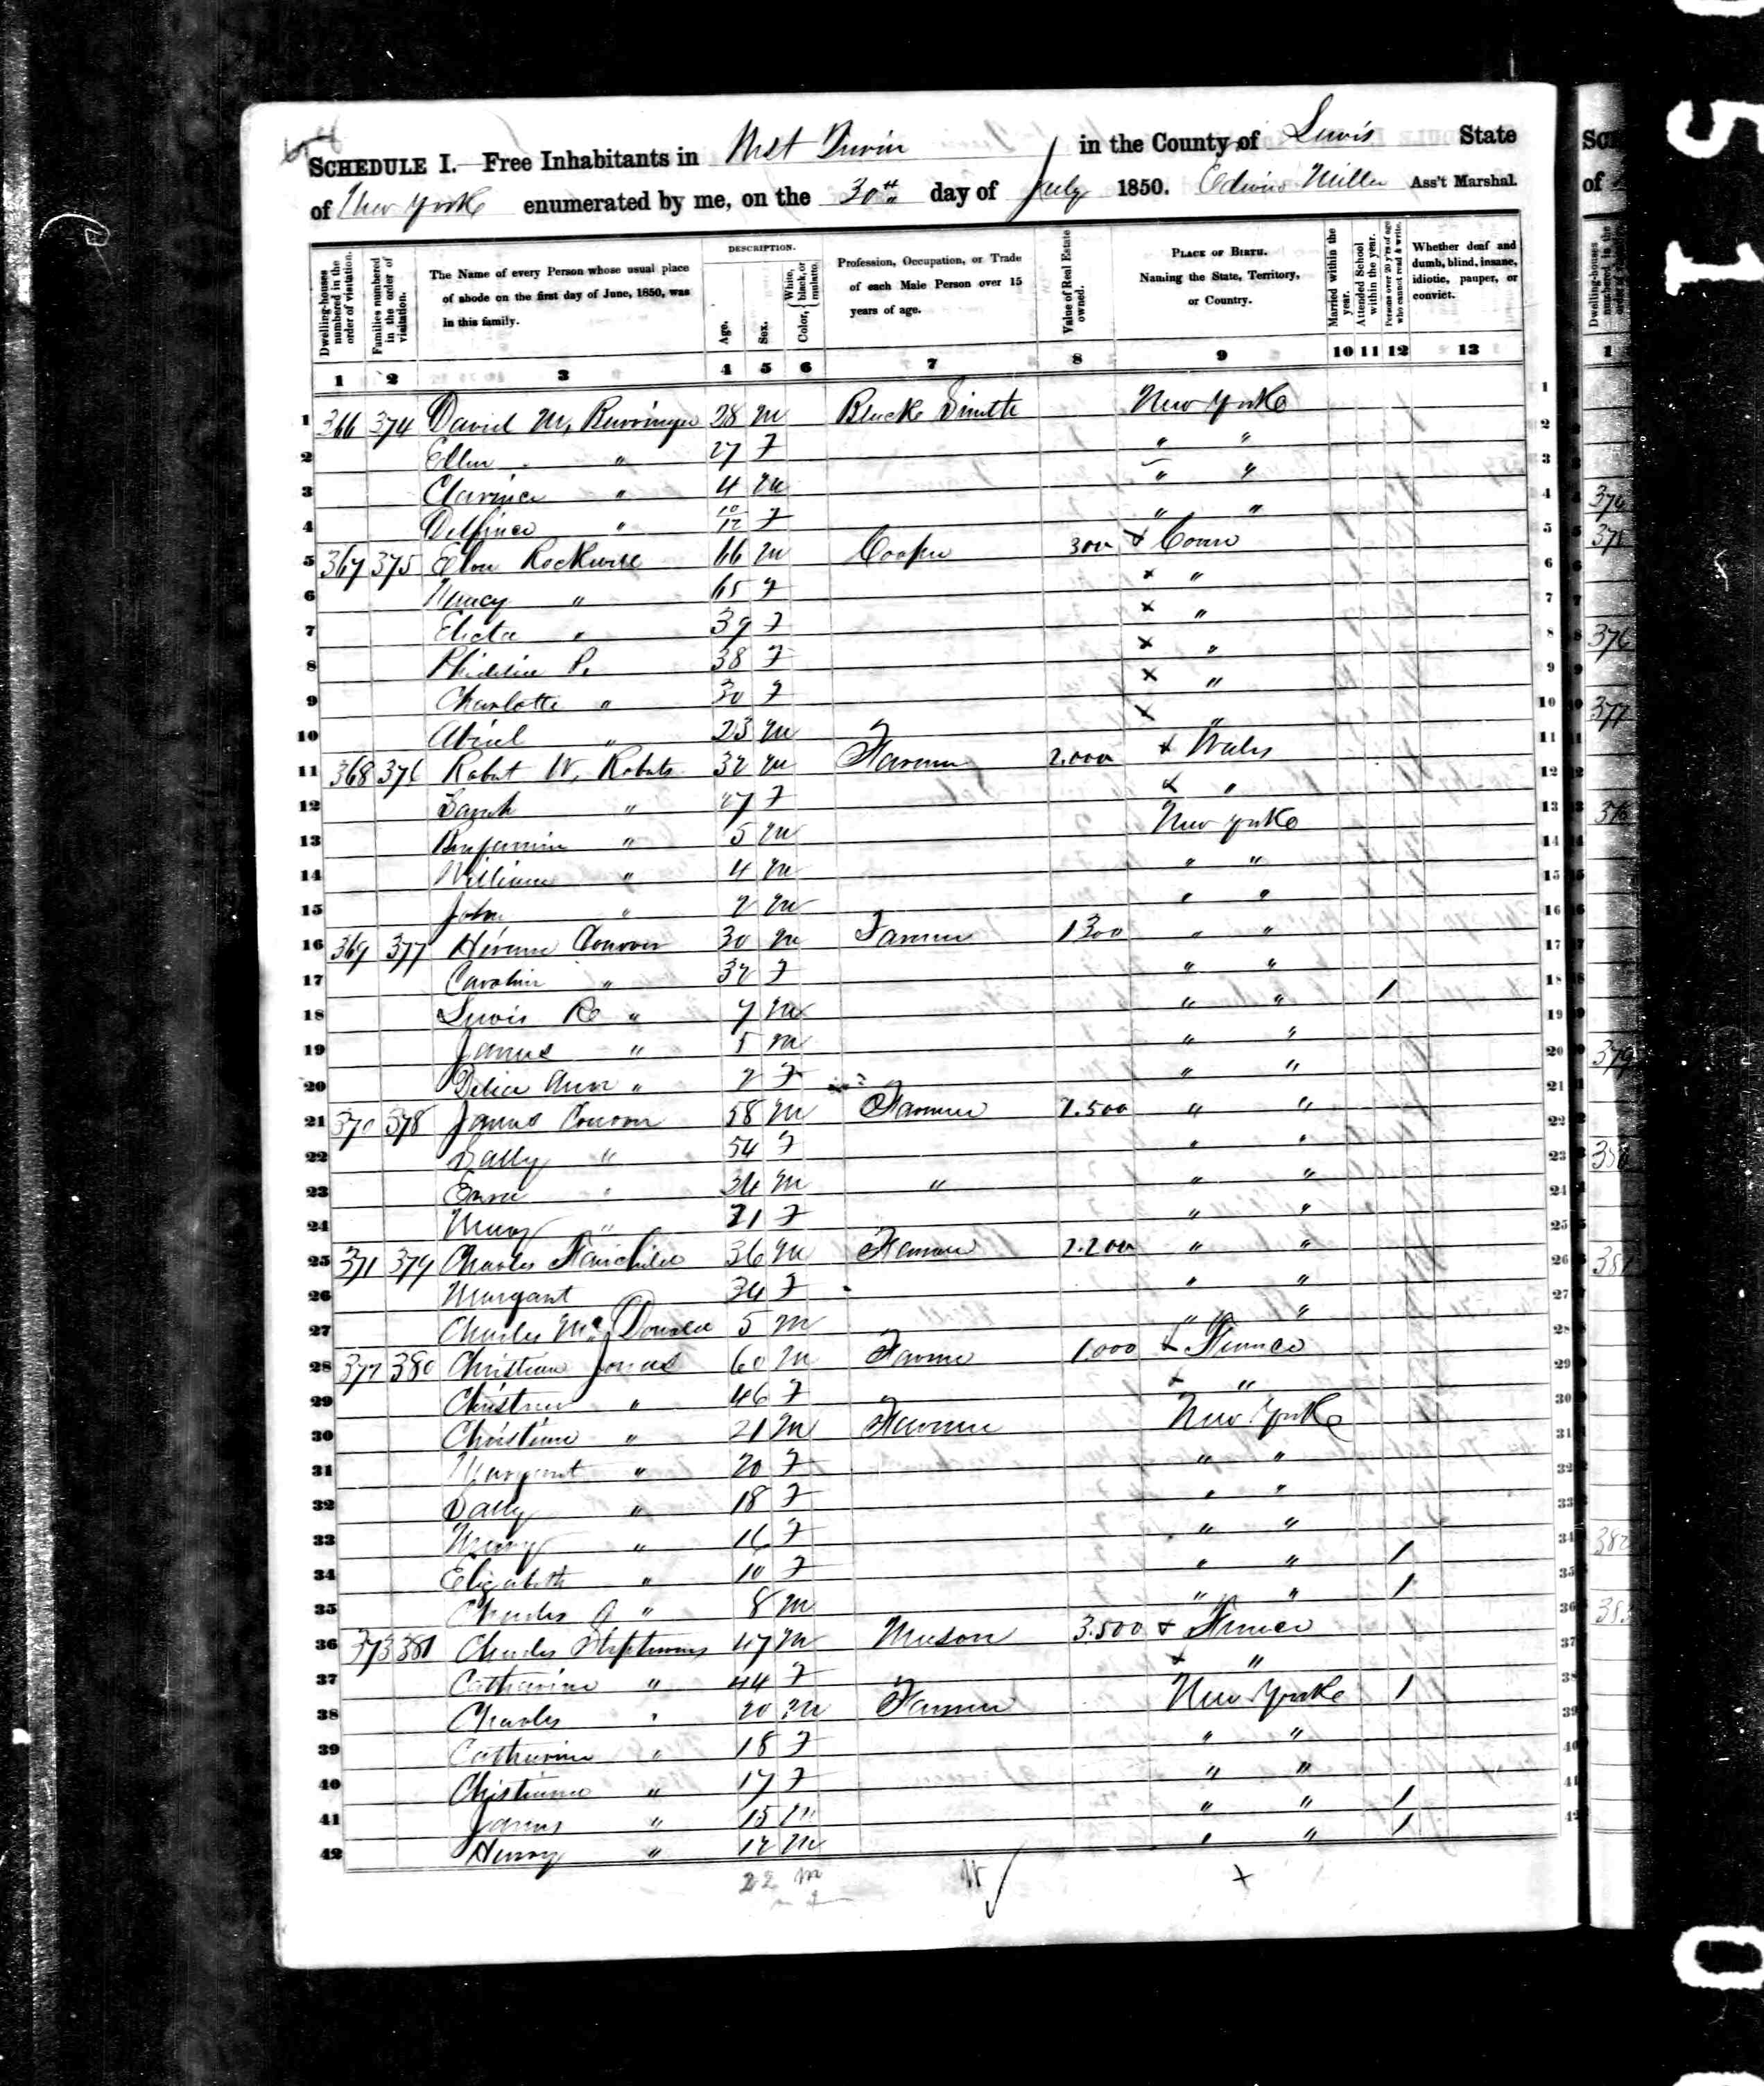 SCHEDULE I.— Free Inhabitants in West Turin in the County of Lewis State
of New York enumerated by me, on the 30th day of July 1850. Edwin Miller Ass't Marshal.
Dwelling-houses numbered in the order of visitation.
Families numbered in the order of visitation.
The Name of every Person whose usual place of abode on the first day of June, 1850, was in this family.
DESCRIPTION.
Age.
Sex.
Color, { White, black, or mulatto.
Profession, Occupation, or Trade of each Male Person over 15 years of age.
Value of Real Estate owned.
PLACE OF BIRTH. Naming the State, Territory, or Country.
Married within the year.
Attended School within the year.
Persons over 20 y'rs of age who cannot read & write.
Whether deaf and dumb, blind, insane, idiotic, pauper, or convict.
1 2 3 4 5 6 7 8 9 10 11 12 13
1 366 374 David M. 28 M Black Smith New York 1
2 Ellen " 27 F " " 2
3 Clarince " 4 M " " 3
4 " 10/12 F " " 4
5 367 375 Rockwell 66 M Cooper 300 x Conn 5
6 Nancy " 65 F x " 6
7 Electa " 39 F x " 7
8 P. 38 F x " 8
9 Charlotte " 30 F x " 9
10 Abiel " 23 M x " 10
11 368 376 Robert W. Roberts 32 M Farmer 2.000 x Wales 11
12 Sarah " 27 F x " 12
13 Benjamin " 5 M New York 13
14 William " 4 M " " 14
15 John " 2 M " " 15
16 369 377 Hiram Conover 30 M Farmer 1300 " " 16
17 Carolin " 32 F " " 17
18 Lewis R " 7 M " " 1 18
19 James " 5 M " " 19
20 Delia Ann " 2 F " " 20
21 370 378 James Conover 58 M Farmer 2.500 " " 21
22 Sally " 54 F " " 22
23 " 34 M " " " 23
24 Mary " 21 F " " 24
25 371 379 Charles Fairchild 36 M Farmer 2.200 " " 25
26 Margaret 34 F " " 26
27 Charles Mc Donald 5 M " " 27
28 372 380 Christian Jonas 60 M Farmer 1.000 x France 28
29 " 46 F x " 29
30 Christian " 21 M Farmer New York 30
31 Margaret " 20 F " " 31
32 Sally " 18 F " " 32
33 Mary " 16 F " " 33
34 Elizabeth " 10 F " " 1 34
35 Charles " 8 M " " 1 35
36 373 381 Charles Stephens 47 M Mason 3.500 x France 36
37 Catharine " 44 F x " 37
38 Charles " 20 M Farmer New York 1 38
39 Catharine " 18 F " " 39
40 Christianna " 17 F " " 40
41 James " 15 M " " 1 41
42 Henry " 12 M " " 1 42
22 M
376
377
379
381
382
383
51
0